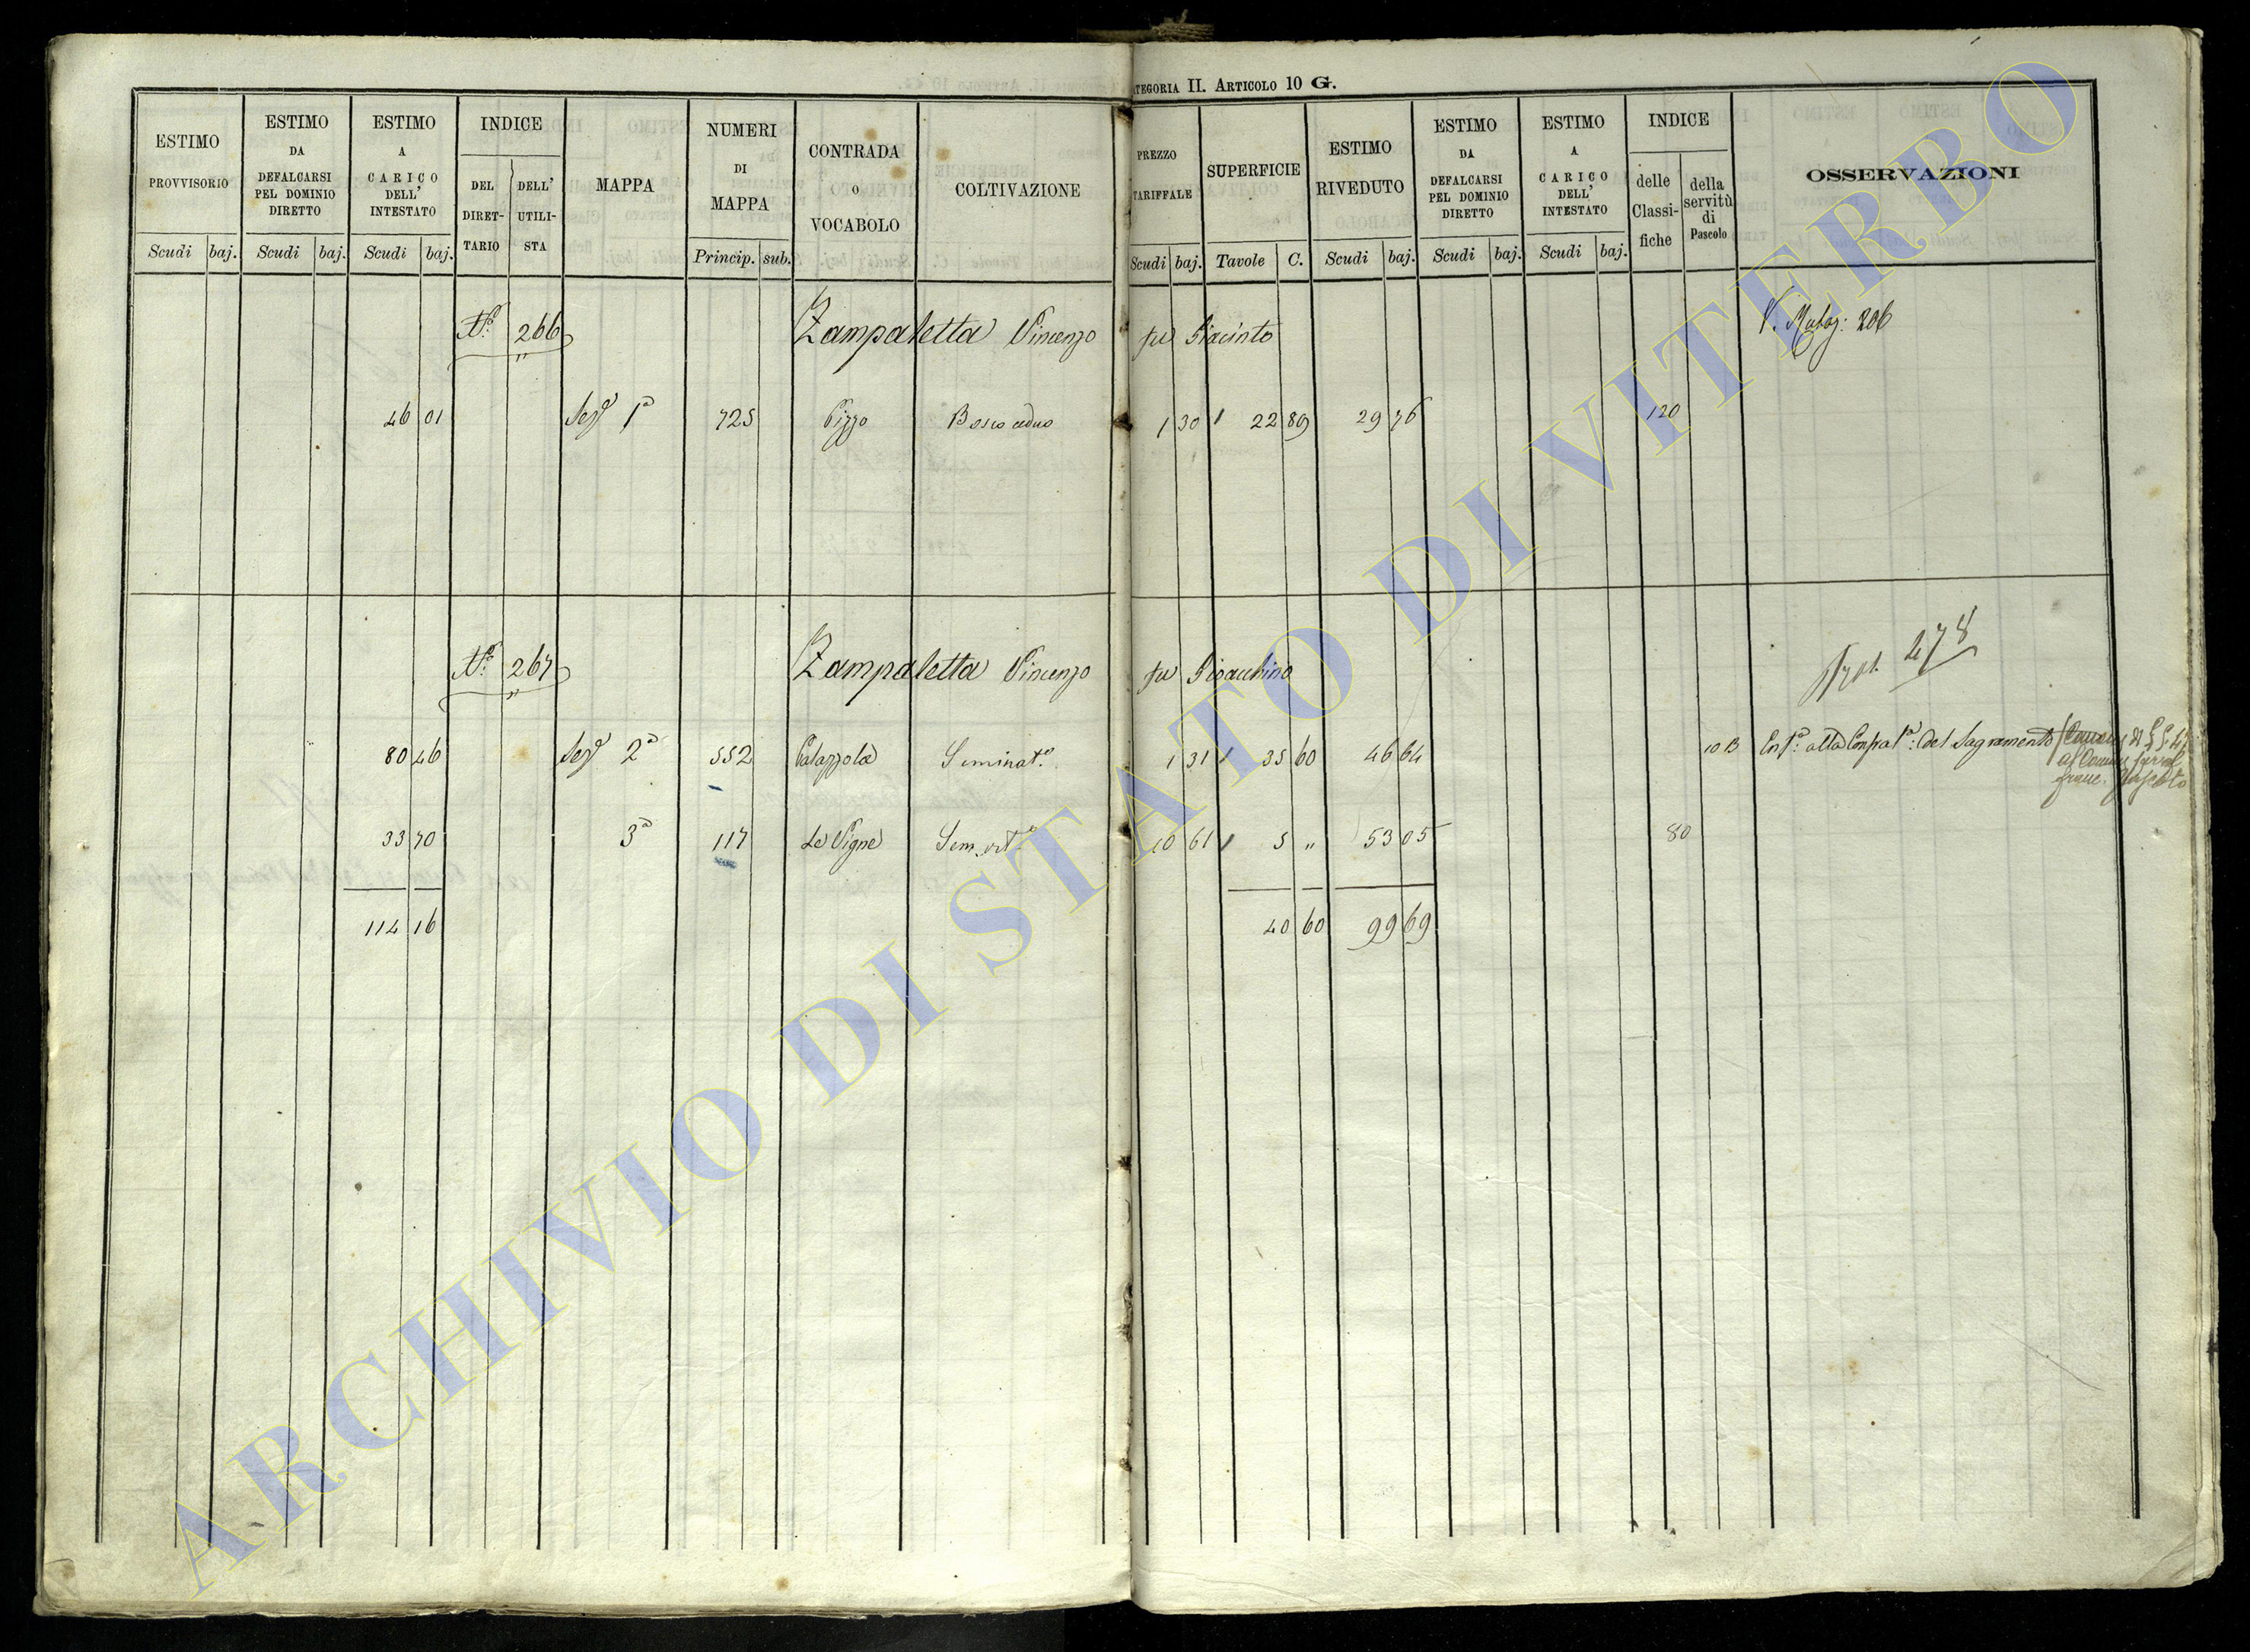 CATEGORIA II. ARTICOLO 10 G.
ESTIMO PROVVISORIO Scudi baj.
ESTIMO DA DEFALCARSI PEL DOMINIO DIRETTO Scudi baj.
ESTIMO A CARICO DELL' INTESTATO Scudi baj.
INDICE DEL DIRETTARIO DELL' UTILISTA
MAPPA
NUMERI DI MAPPA Princip. sub.
CONTRADA O VOCABOLO
COLTIVAZIONE
PREZZO TARIFFALE Scudi baj.
SUPERFICIE Tavole C.
ESTIMO RIVEDUTO Scudi baj.
ESTIMO DA DEFALCARSI PEL DOMINIO DIRETTO Scudi baj.
ESTIMO A CARICO DELL' INTESTATO Scudi baj.
INDICE delle Classifiche della servitù di Pascolo
OSSERVAZIONI
N.º 266 Zampaletta Vincenzo fu Giacinto 206
46 01 Sez.e 1ª 725 Pizzo Bosco ceduo 1 30 22 89 29 76 120
N.º 267 Zampaletta Vincenzo fu Gioacchino 278
80 46 Sez.e 2ª 552 Palazzola Seminat.º 1 31 35 60 46 64 10 B Enf.ª alla Compa.ª: del Sagramento
33 70 3ª 117 Le Vigne Sem. vit.º 10 61 5 „ 53 05 80
114 16 40 60 99 69
ARCHIVIO DI STATO DI VITERBO